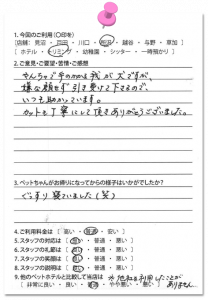 1.今回のご利用(○印を)
[店舗: 見沼 ・ 戸田 ・ 川口 ・ 所沢 ・ 越谷 ・ 与野 ・ 草加 ]
[ホテル ・ トリミング ・ 幼稚園 ・ シッター ・ 一時預かり ]
2.ご意見・ご要望・苦情・ご感想
やんちゃで の我が犬ですが、
嫌な顔をず引き受けて下さるので、
いつも助かっています。
カットも丁寧にして頂きありがとうございました。
3.ペットちゃんがお帰りになってからの様子はいかがでしたか?
ぐっすり寝ていました(笑)
4.ご利用料金は [ 高い ・ 普通 ・ 安い ]
5.スタッフの対応は [ 良い ・ 普通 ・ 悪い ]
6.スタッフの態度は [ 良い ・ 普通 ・ 悪い ]
7.スタッフの笑顔は [ 良い ・ 普通 ・ 悪い ]
8.スタッフの説明は [ 良い ・ 普通 ・ 悪い ]
9.他のペットホテルと比較して当店は ※他社を利用したことが
[ 非常に良い ・ 良い ・ 普通 ・ やや悪い ・ 悪い ] ありません